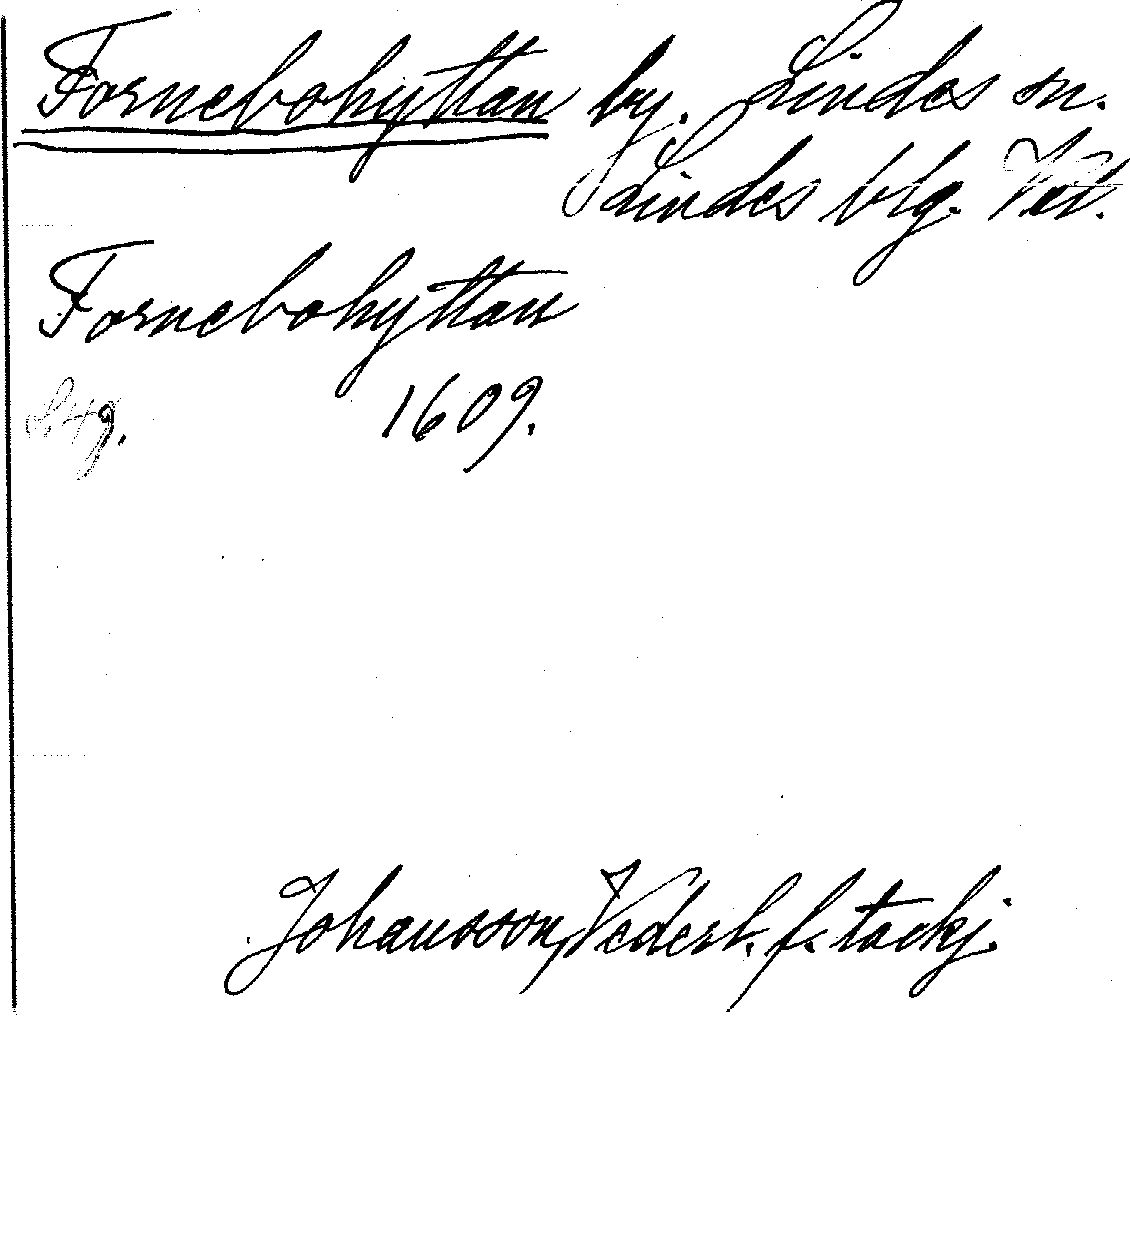 Fornebohyttan by. Lindes sn.
Lindes blg. Vstl.
Fornebohyttan
S. 49. 1609.
Johansson, Vederl. f. tackj.